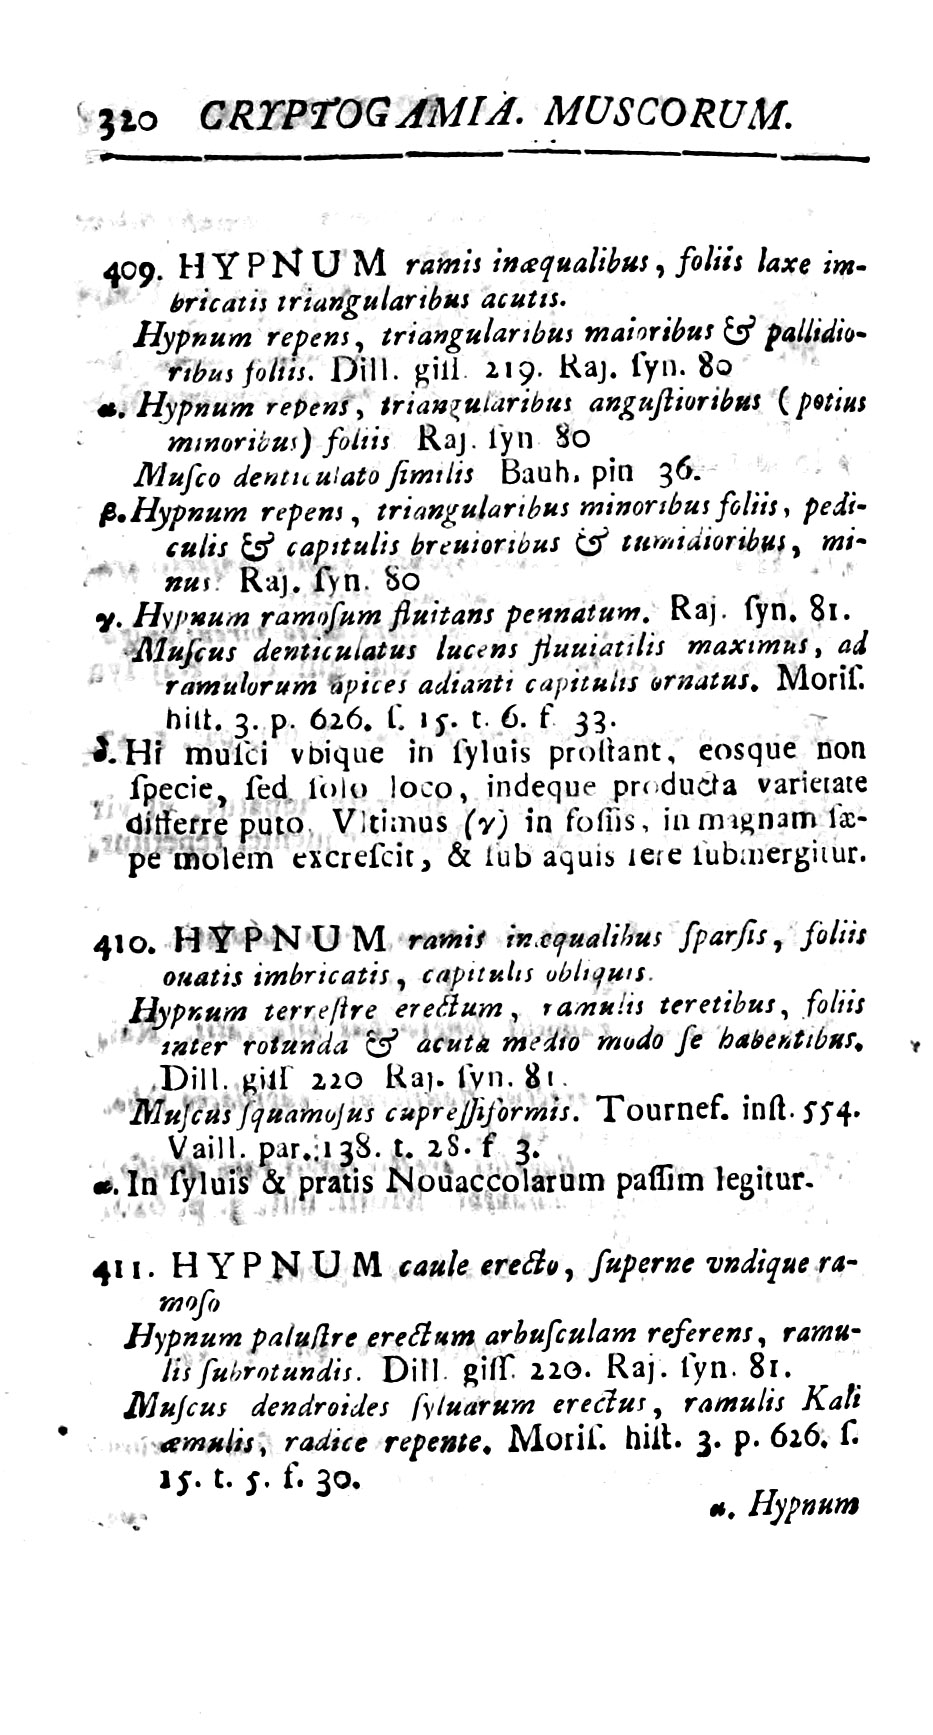 320 CRYPTOGAMIA. MUSCORUM.
409. HYPNUM ramis inæqualibus, foliis laxe im-
bricatis triangularibus acutis.
Hypnum repens, triangularibus maioribus & pallidio-
ribus foliis. Dill. giſſ. 219. Raj. ſyn. 80
α. Hypnum repens, triangularibus anguſtioribus (potius
minoribus) foliis Raj. ſyn 80
Muſco denticulato ſimilis Bauh. pin 36.
β. Hypnum repens, triangularibus minoribus foliis, pedi-
culis & capitulis breuioribus & tumidioribus, mi-
nus. Raj. ſyn. 80
γ. Hypnum ramoſum fluitans pennatum. Raj. ſyn. 81.
Muſcus denticulatus lucens fluuiatilis maximus, ad
ramulorum apices adianti capitulis ornatus. Moriſ.
hiſt. 3. p. 626. ſ. 15. t. 6. f 33.
δ. Hi muſci vbique in ſyluis proſtant, eosque non
ſpecie, ſed ſolo loco, indeque producta varietate
differre puto. Vltimus (γ) in foſſis, in magnam ſæ-
pe molem excreſcit, & ſub aquis fere ſubmergitur.
410. HYPNUM ramis inæqualibus ſparſis, foliis
ouatis imbricatis, capitulis obliquis.
Hypnum terreſtre erectum, ramulis teretibus, foliis
inter rotunda & acuta medio modo ſe habentibus.
Dill. giſſ 220 Raj. ſyn. 81.
Muſcus ſquamoſus cupreſſiformis. Tournef. inſt. 554.
Vaill. par. 138. t. 28. f 3.
α. In ſyluis & pratis Nouaccolarum paſſim legitur.
411. HYPNUM caule erecto, ſuperne vndique ra-
moſo
Hypnum paluſtre erectum arbuſculam referens, ramu-
lis ſubrotundis. Dill. giſſ. 220. Raj. ſyn. 81.
Muſcus dendroides ſyluarum erectus, ramulis Kali
æmulis, radice repente. Moriſ. hiſt. 3. p. 626. ſ.
15. t. 5. f. 30.
α. Hypnum